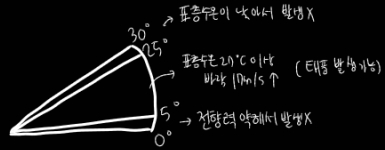 30° → 표층수온이 낮아서 발생X
25°
표층수온 27°C 이상
바람 17m/s ↑ (태풍 발생가능)
5°
0° → 전향력 약해서 발생X